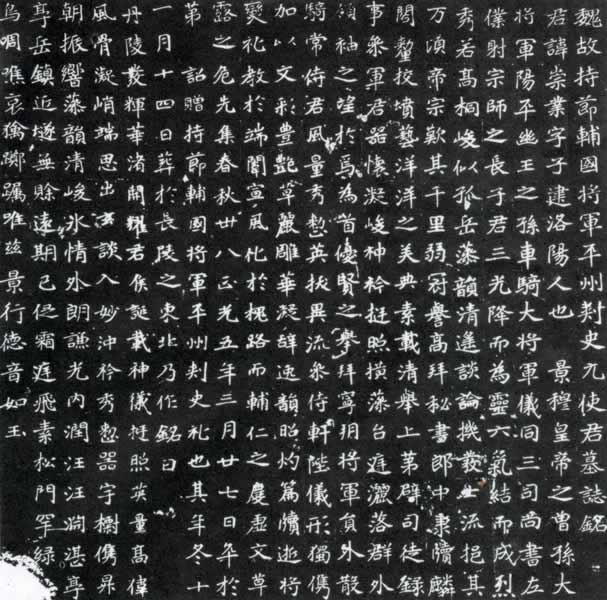 魏故持節輔國將軍平州刺史元使君墓誌銘
君諱崇業字子建洛陽人也景穆皇帝之曾孫大
將軍陽平幽王之孫車騎大將軍儀同三司尚書左
僕射宗師之長子君三光降而為靈六氣結而成烈
秀若高桐峻似孤岳藻韻清遙談論機發世流挹其
万頃帝宗歎其千里弱冠譽高拜秘書郎中秉牘麟
閣釐校墳藝洋洋之美典素載清舉上第辟司徒錄
事參軍君器懷凝峻神衿挺照摛藻台庭灑落群外
領袖之望於焉為首優賢之舉拜寧朔將軍員外散
騎常侍君風量秀整英拔異流參侍軒陛儀形獨儁
加以文彩豊艷草麗雕華凝辭逸韻昭灼篇牘逝將
變化教於端闈宣風化於槐路而輔仁之慶虛文草
露之危先集春秋卅八正光五年三月廿七日卒於
第詔贈持節輔國將軍平州刺史礼也其年冬十
一月十四日葬於長陵之東北乃作銘曰
丹陵發輝華渚開耀君侯誕載神儀挺照英量高偉
風骨凝峭端思出谷談入妙沖衿秀整器宇櫹儁昇
朝振響藻韻清峻氷情外朗讌光內潤汪汪淵湛亭
亭岳鎮近燧無賒遠期已促霜庭飛素松門罕綠
烏啁唯哀禽躑躅唯茲景行德音如玉